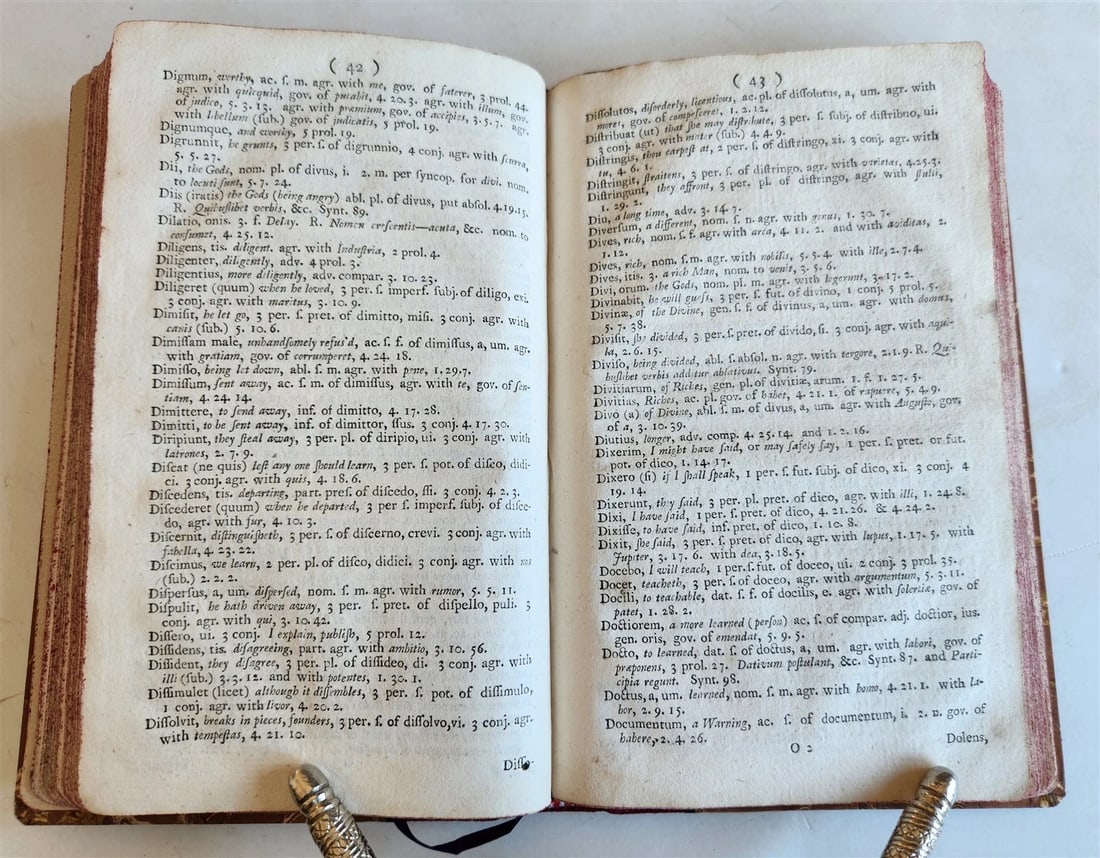 ( 42 )
Dignum, worthy, ac. ſ. m. agr. with me, gov. of faterer, 3 prol. 44.
agr. with quicquid, gov. of putabit, 4. 20. 3. agr. with illum, gov.
of judico, 5. 3. 13. agr. with præmium, gov. of accipies, 3. 5. 7. agr.
with libellum (ſub.) gov. of judicatis, 5 prol. 19.
Dignumque, and worthy, 5 prol. 19.
Digrunnit, he grunts, 3 per. ſ. of digrunnio, 4 conj. agr. with ſcurra,
5. 5. 27.
Dii, the Gods, nom. pl. of divus, i. 2. m. per ſyncop. for divi. nom.
to locuti ſunt, 5. 7. 24.
Diis (iratis) the Gods (being angry) abl. pl. of divus, put abſol. 4. 19. 15.
R. Quibuſlibet verbis, &c. Synt. 89.
Dilatio, onis. 3. f. Delay. R. Nomen creſcentis—acuta, &c. nom. to
conſumet, 4. 25. 12.
Diligens, tis. diligent. agr. with Induſtria, 2 prol. 4.
Diligenter, diligently, adv. 4 prol. 3.
Diligentius, more diligently, adv. compar. 3. 10. 23.
Diligeret (quum) when he loved, 3 per. ſ. imperf. ſubj. of diligo, exi.
3 conj. agr. with maritus, 3. 10. 9.
Dimiſit, he let go, 3 per. ſ. pret. of dimitto, miſi. 3 conj. agr. with
canis (ſub.) 5. 10. 6.
Dimiſſam male, unhandſomely refus'd, ac. ſ. f. of dimiſſus, a, um. agr.
with gratiam, gov. of corrumperet, 4. 24. 18.
Dimiſſo, being let down, abl. ſ. m. agr. with pene, 1. 29. 7.
Dimiſſum, ſent away, ac. ſ. m. of dimiſſus, agr. with te, gov. of ſen-
tiam, 4. 24. 14.
Dimittere, to ſend away, inf. of dimitto, 4. 17. 28.
Dimitti, to be ſent away, inf. of dimittor, ſſus. 3 conj. 4. 17. 30.
Diripiunt, they ſteal away, 3 per. pl. of diripio, ui. 3 conj. agr. with
latrones, 2. 7. 9.
Diſcat (ne quis) leſt any one ſhould learn, 3 per. ſ. pot. of diſco, didi-
ci. 3 conj. agr. with quis, 4. 18. 6.
Diſcedens, tis. departing, part. preſ. of diſcedo, ſſi. 3 conj. 4. 2. 3.
Diſcederet (quum) when he departed, 3 per ſ. imperf. ſubj. of diſce-
do, agr. with fur, 4. 10. 3.
Diſcernit, diſtinguiſheth, 3 per. ſ. of diſcerno, crevi. 3 conj. agr. with
fabella, 4. 23. 22.
Diſcimus, we learn, 2 per. pl. of diſco, didici. 3 conj. agr. with nos
(ſub.) 2. 2. 2.
Diſperſus, a, um. diſperſed, nom. ſ. m. agr. with rumor, 5. 5. 11.
Diſpulit, he hath driven away, 3 per. ſ. pret. of diſpello, puli. 3
conj. agr. with qui, 3. 10. 42.
Diſſero, ui. 3 conj. I explain, publiſh, 5 prol. 12.
Diſſidens, tis. diſagreeing, part. agr. with ambitio, 3. 10. 56.
Diſſident, they diſagree, 3 per. pl. of diſſideo, di. 3 conj. agr. with
illi (ſub.) 3. 3. 12. and with potentes, 1. 30. 1.
Diſſimulet (licet) although it diſſembles, 3 per. ſ. pot. of diſſimulo,
1 conj. agr. with livor, 4. 20. 2.
Diſſolvit, breaks in pieces, founders, 3 per. ſ. of diſſolvo, vi. 3 conj. agr.
with tempeſtas, 4. 21. 10.
Diſſo-
( 43 )
Diſſolutos, diſorderly, licentious, ac. pl. of diſſolutus, a, um. agr. with
mores, gov. of compeſceret, 1. 2. 12.
Diſtribuat (ut) that ſhe may diſtribute, 3 per. ſ. ſubj. of diſtribuo, ui.
3 conj. agr. with mater (ſub.) 4. 4. 9.
Diſtringis, thou carpeſt at, 2 per. ſ. of diſtringo, xi. 3 conj. agr. with
tu, 4. 6. 1.
Diſtringit, ſtraitens, 3 per. ſ. of diſtringo, agr. with varietas, 4. 25. 3.
Diſtringunt, they affront, 3 per. pl. of diſtringo, agr. with ſtulti,
1. 29. 2.
Diu, a long time, adv. 3. 14. 7.
Diverſum, a different, nom. ſ. n. agr. with genus, 1. 30. 7.
Dives, rich, nom. ſ. f. agr. with arca, 4. 11. 2. and with aviditas, 2.
1. 12.
Dives, rich, nom. ſ. m. agr. with nobilis, 5. 5. 4. with ille, 2. 7. 4.
Dives, itis. 3. a rich Man, nom. to venit, 3. 5. 6.
Divi, orum. the Gods, nom. pl. m. agr. with legerunt, 3. 17. 2.
Divinabit, he will gueſs, 3 per. ſ. fut. of divino, 1 conj. 5 prol. 5.
Divinæ, of the Divine, gen. ſ. f. of divinus, a, um. agr. with domus,
5. 7. 38.
Diviſit, ſhe divided, 3 per. ſ. pret. of divido, ſi. 3 conj. agr. with aqui-
la, 2. 6. 15.
Diviſo, being divided, abl. ſ. abſol. n. agr. with tergore, 2. 1. 9. R. Qui-
buſlibet verbis additur ablativus. Synt. 79.
Divitiarum, of Riches, gen. pl. of divitiæ, arum. 1. f. 1. 27. 5.
Divitias, Riches, ac. pl. gov. of habet, 4. 21. 1. of rapuere, 5. 4. 9.
Divo (a) of Divine, abl. ſ. m. of divus, a, um. agr. with Auguſto, gov.
of a, 3. 10. 39.
Diutius, longer, adv. comp. 4. 25. 14. and 1. 2. 16.
Dixerim, I might have ſaid, or may ſafely ſay, 1 per. ſ. pret. or fut.
pot. of dico, 1. 14. 17.
Dixero (ſi) if I ſhall ſpeak, 1 per. ſ. fut. ſubj. of dico, xi. 3 conj. 4
19. 14.
Dixerunt, they ſaid, 3 per. pl. pret. of dico, agr. with illi, 1. 24. 8.
Dixi, I have ſaid, 1 per. ſ. pret. of dico, 4. 21. 26. & 4. 24. 2.
Dixiſſe, to have ſaid, inf. pret. of dico, 1. 10. 8.
Dixit, ſhe ſaid, 3 per. ſ. pret. of dico, agr. with lupus, 1. 17. 5. with
Jupiter, 3. 17. 6. with dea, 3. 18. 5.
Docebo, I will teach, 1 per. ſ. fut. of doceo, ui. 2 conj. 3 prol. 35.
Docet, teacheth, 3 per. ſ. of doceo, agr. with argumentum, 5. 3. 11.
Docili, to teachable, dat. ſ. f. of docilis, e. agr. with ſolertiæ, gov. of
patet, 1. 28. 2.
Doctiorem, a more learned (perſon) ac. ſ. of compar. adj. doctior, ius.
gen. oris, gov. of emendat, 5. 9. 5.
Docto, to learned, dat. ſ. of doctus, a, um. agr. with labori, gov. of
præponens, 3 prol. 27. Dativum poſtulant, &c. Synt. 87. and Parti-
cipia regunt. Synt. 98.
Doctus, a, um. learned, nom. ſ. m. agr. with homo, 4. 21. 1. with la-
bor, 2. 9. 15.
Documentum, a Warning, ac. ſ. of documentum, i. 2. n. gov. of
habere, 2. 4. 26.
O 2
Dolens,